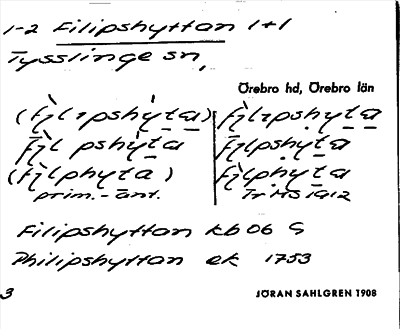 1-2 Filipshyttan 1+1
Tysslinge sn,
Örebro hd, Örebro län
(fìlıpshy̍ta) fìlıpshyta
fìl pshy̍ta fìlpshyta
(fìlphyta) fìlphyta
prim.-ant. Tr MS 1912
Filipshyttan kb 06 G
Philipshyttan ek 1753
3 JÖRAN SAHLGREN 1908